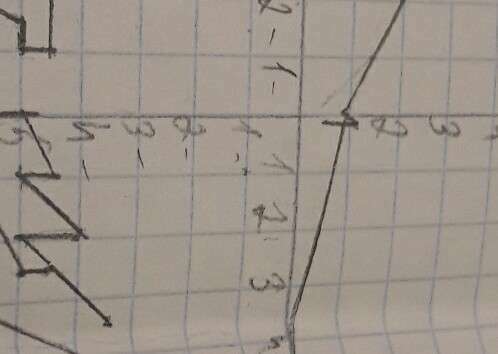 3
2
1
2 - 1 - 1 2 3
1 -
2 -
3 -
4 -
5